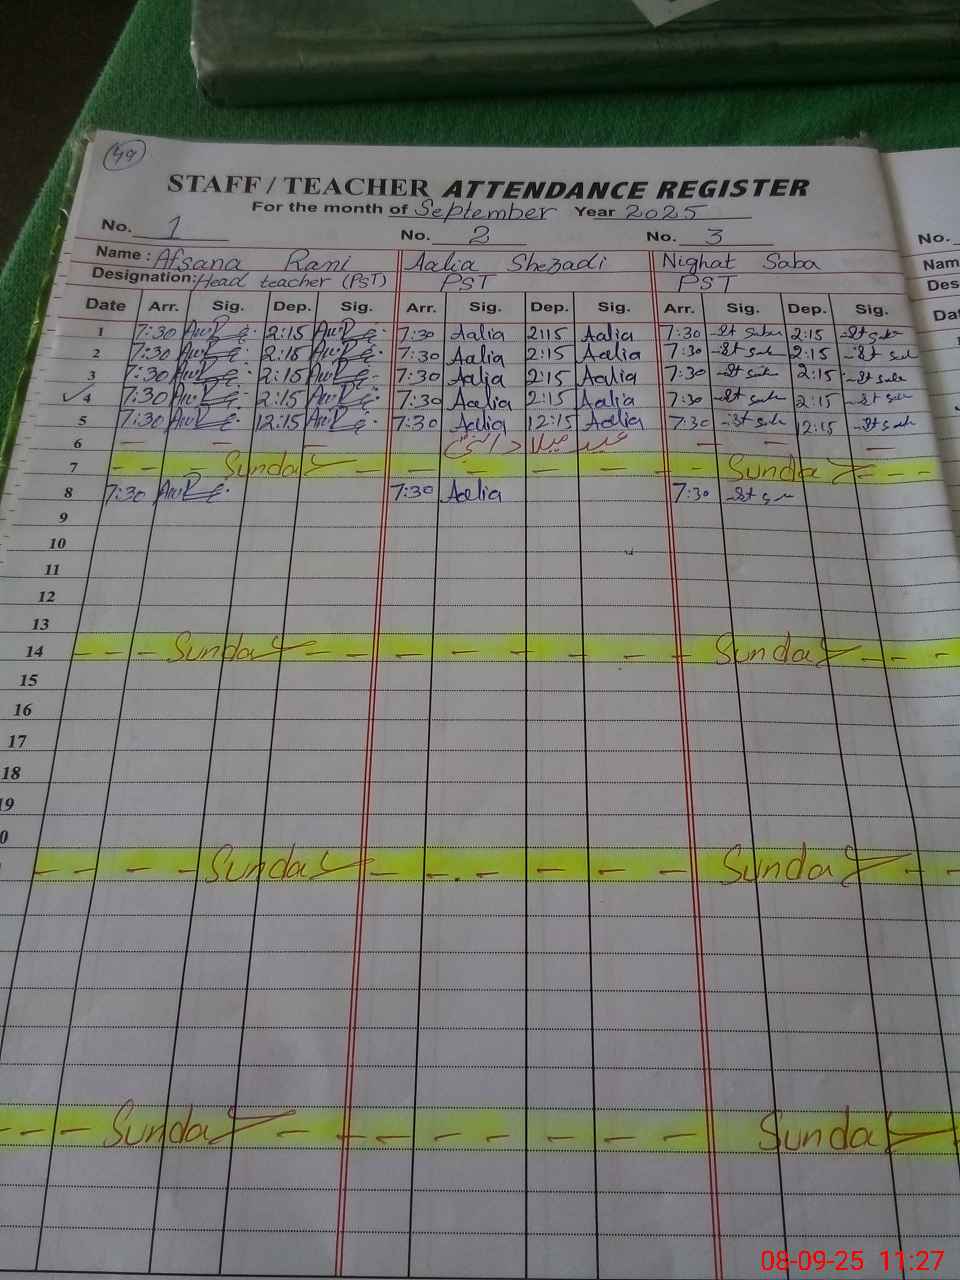 49
STAFF / TEACHER ATTENDANCE REGISTER
For the month of September Year 2025
No. 1 No. 2 No. 3 No.
Name : Afsana Rani Aalia Shezadi Nighat Saba Nam
Designation: Head teacher (PST) PST PST Des
Date Arr. Sig. Dep. Sig. Arr. Sig. Dep. Sig. Arr. Sig. Dep. Sig. Dat
1 7:30 2:15 7:30 Aalia 2:15 Aalia 7:30 2:15
2 7:30 2:15 7:30 Aalia 2:15 Aalia 7:30 2:15
3 7:30 2:15 7:30 Aalia 2:15 Aalia 7:30 2:15
4 7:30 2:15 7:30 Aalia 2:15 Aalia 7:30 2:15
5 7:30 12:15 7:30 Aalia 12:15 Aalia 7:30 12:15
6 عید میلاد النبی
7 Sunday Sunday
8 7:30 7:30 Aalia 7:30
9
10
11
12
13
14 Sunday Sunday
15
16
17
18
19
0
Sunday Sunday
Sunday Sunday
08-09-25 11:27